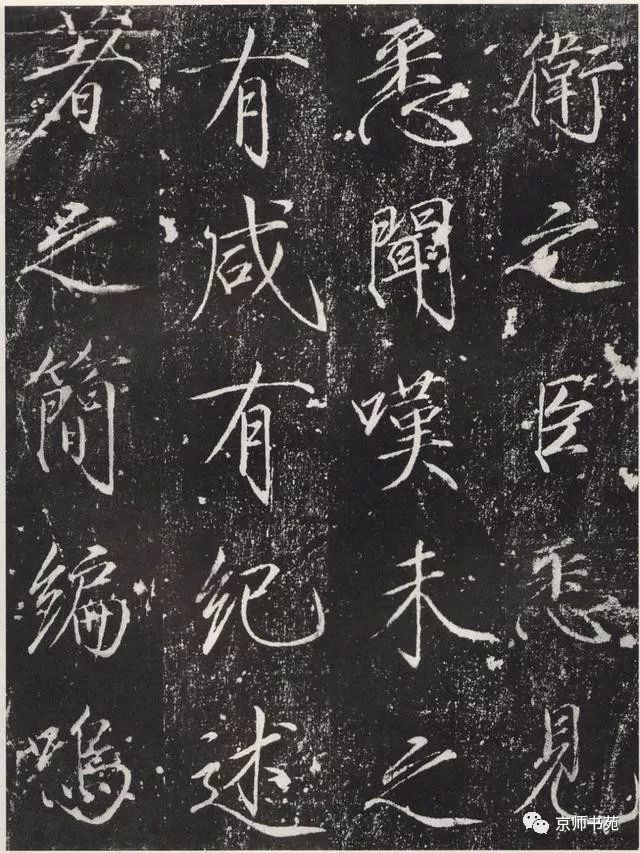 衛之臣悉見
悉聞嘆未之
有咸有紀述
著之簡編鳴
京师书苑